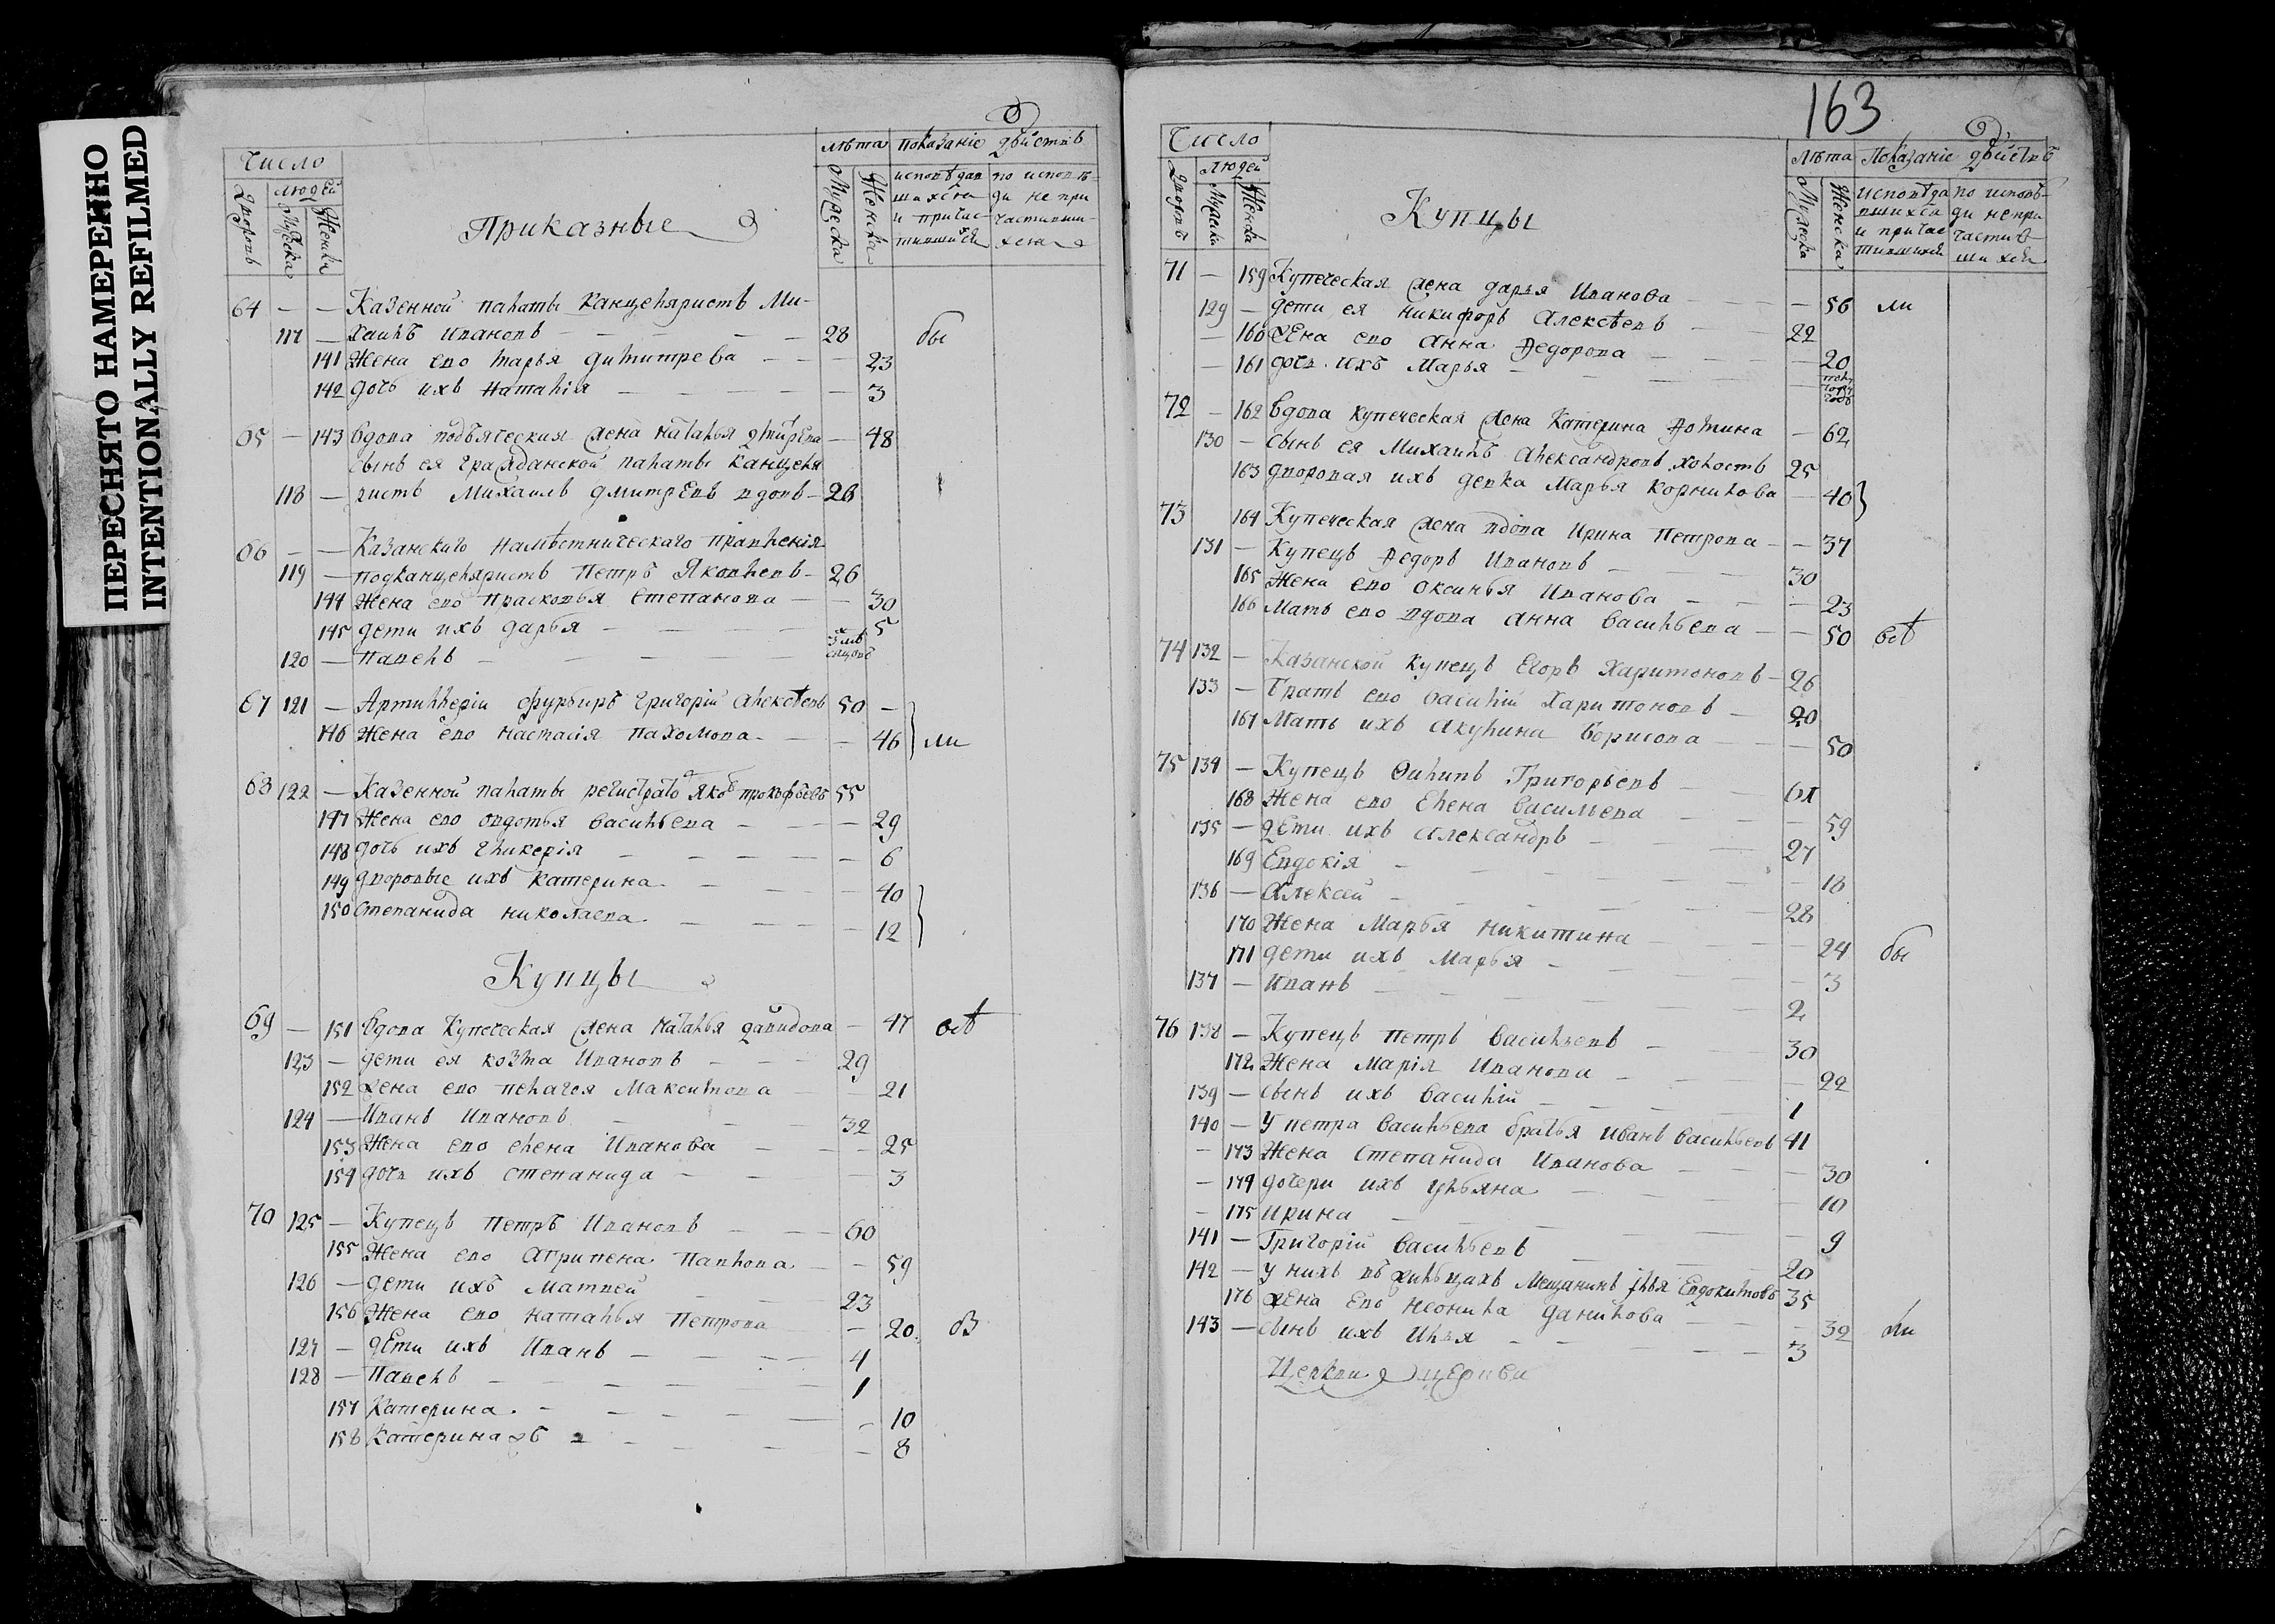 ПЕРЕСНЯТО НАМЕРЕННО
INTENTIONALLY REFILMED
Число
людей
дворовъ
Мужеска
Женска
Приказные
лѣта показаніе дѣйствъ
Мужеска
Женска
исповѣдав по исповѣ-
шихся ди не при
и причас- частивши-
тившихся хся
64 — — Казенной палаты канцеляристъ Ми-
117 — хаилъ Ивановъ 28 бы
141 Жена ево марья димитрева 23
142 дочь ихъ Наталія 3
65 — 143 вдова подъяческия жена наталья дмитрева 48
сынъ ея гражданской палаты канцеля
118 — ристъ Михаилъ дмитревъ вдовъ 26
66 — — Казанскаго Намѣстническаго правленія
119 — подканцеляристъ Петръ Яковлевъ 26
144 Жена ево прасковья степанова 30
145 дети ихъ дарья 5
120 — Павелъ
67 121 — Артиллеріи фурьиръ григорій алексѣевъ 50 —
146 Жена ево настасія пахомова 46 ли
68 122 — Казенной палаты регистрато яко прокофьевъ 55
147 Жена ево овдотья васильева 29
148 дочь ихъ гликерія 6
149 дворовые ихъ катерина 40
150 степанида николаева 12
Купцы
69 — 151 вдова купеческая жена наталья давидова 47 всѣ
123 — дети ея козма Ивановъ 29
152 жена ево пелагея Максимова 21
124 — Иванъ Ивановъ 32
153 Жена ево елена Иванова 25
154 дочь ихъ степанида 3
70 125 — Купецъ петръ Ивановъ 60
155 Жена ево агрипена Павлова 59
126 — дети ихъ Матвей 23
156 Жена ево наталья петрова 20
127 — дети ихъ Иванъ 4
128 — Павелъ 1
157 Катерина 10
158 Катерина жъ 8
163
Число
людей
дворовъ
Мужеска
Женска
Купцы
лѣта Показаніе дѣйствъ
Мужеска
Женска
исповѣда по исповѣ-
вшихся ди не при
и причас частив-
тившихся шихся
71 — 159 Купеческая жена дарья Иванова 56 ли
129 — дети ея никифоръ алексѣевъ 22
— 160 жена ево анна федорова 20
— 161 дочь ихъ Марья
72 — 162 вдова купеческая жена катерина фомина 62
130 — сынъ ея Михаилъ александровъ холостъ 25
163 дворовая ихъ девка Марья корнилова 40
73 164 Купеческая жена вдова ирина петрова 37
131 — Купецъ федоръ Ивановъ 30
165 Жена ево оксинья Иванова 23
166 Мать ево вдова анна васильева 50 всѣ
74 132 — Казанской купецъ егоръ харитоновъ 26
133 — братъ ево василій харитоновъ 20
167 Мать ихъ акулина борисова 50
75 134 — Купецъ филипъ Григорьевъ 61
168 Жена ево елена васильева 59
135 — дети ихъ александръ 27
169 Евдокія 18
136 — алексей 28
170 Жена Марья никитина 24 бы
171 дети ихъ марья 3
137 — Иванъ 2
76 138 — Купецъ петръ васильевъ 30
172 Жена марія Иванова 22
139 — сынъ ихъ василій 1
140 — У петра васильева братья иванъ васильевъ 41
— 173 Жена степанида Иванова 30
— 174 дочери ихъ ульяна 10
— 175 ирина 9
141 — Григорій васильевъ 20
142 — у нихъ въ жильцахъ мещанинъ илья евдокимовъ 35
176 жена ево неонила данилова 32 ли
143 — сынъ ихъ илья 3
Церкви церкви